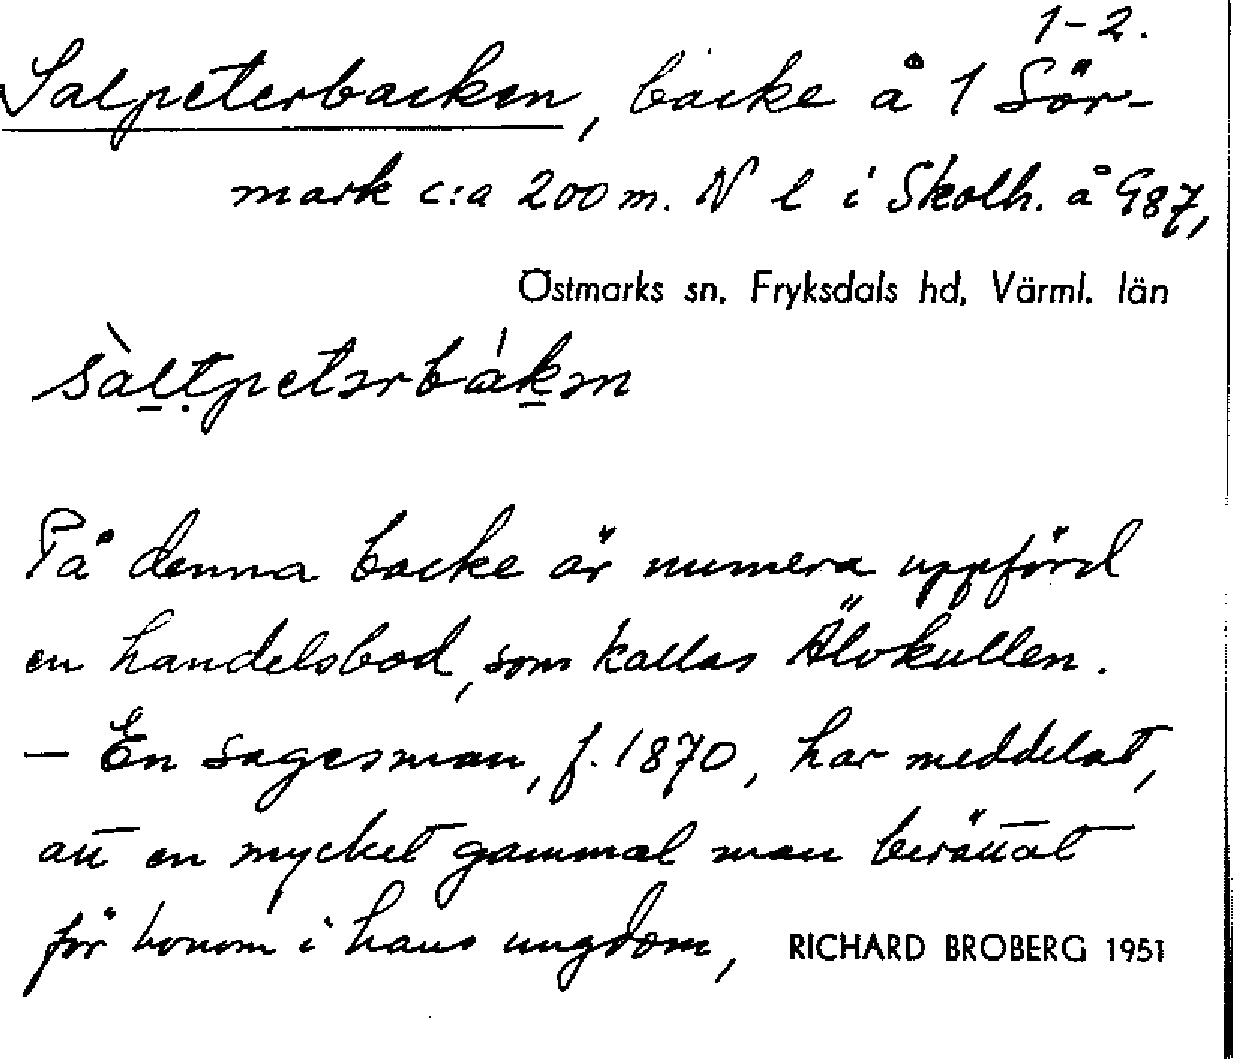 1-2.
Salpeterbacken, backe å 1 Sör-
mark c:a 200 m. N l i Skolh. å 987,
Östmarks sn. Fryksdals hd, Värml. län
sàltpetərbákən
På denna backe är numera uppförd
en handelsbod, som kallas Älvkullen.
— En sagesman, f. 1870, har meddelat,
att en mycket gammal man berättat
för honom i hans ungdom, RICHARD BROBERG 1951